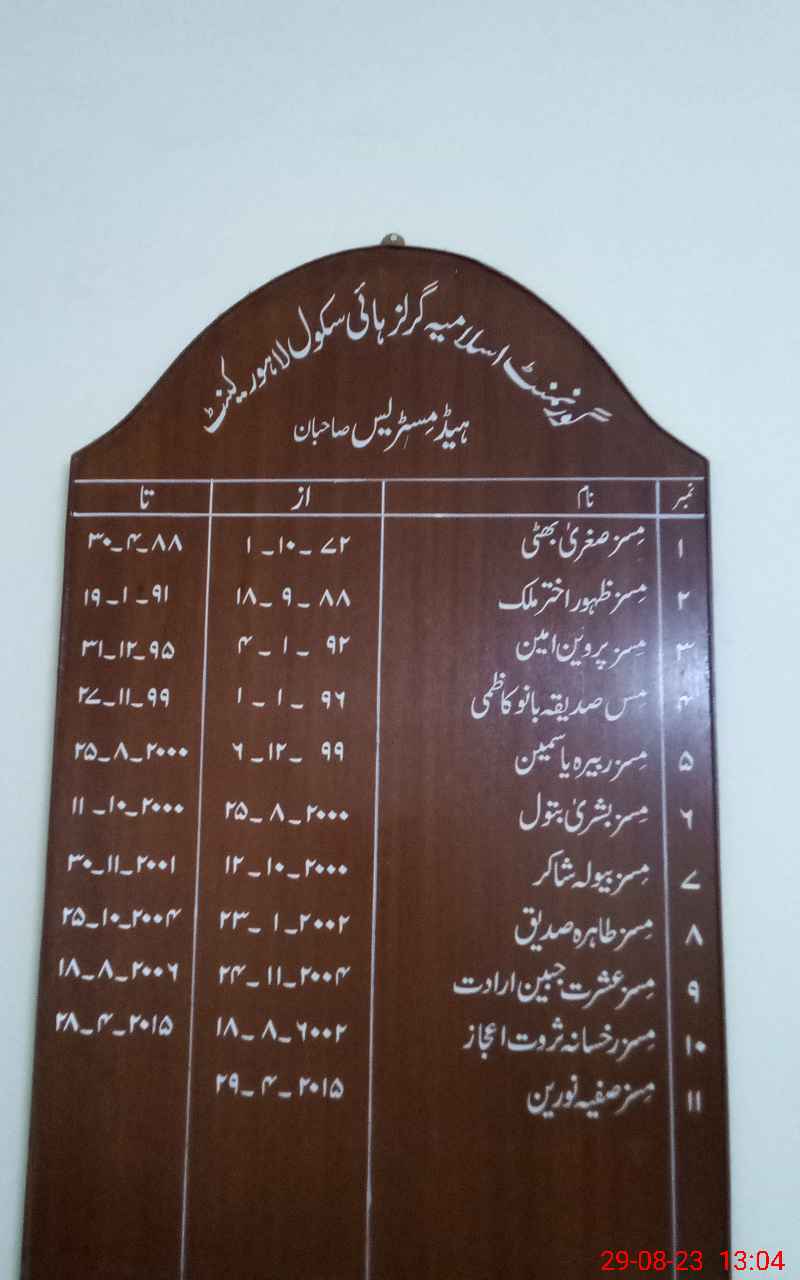 گورنمنٹ اسلامیہ گرلز ہائی سکول لاہور کینٹ
ہیڈ مسٹریس صاحبان
نمبر نام از تا
۱ مسز صغریٰ بھٹی ۱-۱۰-۷۲ ۳۰-۴-۸۸
۲ مسز ظہور اختر ملک ۱۸-۹-۸۸ ۱۹-۱-۹۱
۳ مسز پروین امین ۴-۱-۹۲ ۳۱-۱۲-۹۵
۴ مس صدیقہ بانو کاظمی ۱-۱-۹۶ ۲۷-۱۱-۹۹
۵ مسز ربیرہ یاسمین ۶-۱۲-۹۹ ۲۵-۸-۲۰۰۰
۶ مسز بشریٰ بتول ۲۵-۸-۲۰۰۰ ۱۱-۱۰-۲۰۰۰
۷ مسز بیولہ شاکر ۱۲-۱۰-۲۰۰۰ ۳۰-۱۱-۲۰۰۱
۸ مسز طاہرہ صدیق ۲۳-۱-۲۰۰۲ ۲۵-۱۰-۲۰۰۴
۹ مسز عشرت جبین ارادت ۲۴-۱۱-۲۰۰۴ ۱۸-۸-۲۰۰۶
۱۰ مسز رخسانہ ثروت اعجاز ۱۸-۸-۶۰۰۲ ۲۸-۴-۲۰۱۵
۱۱ مسز صفیہ نورین ۲۹-۴-۲۰۱۵
29-08-23 13:04